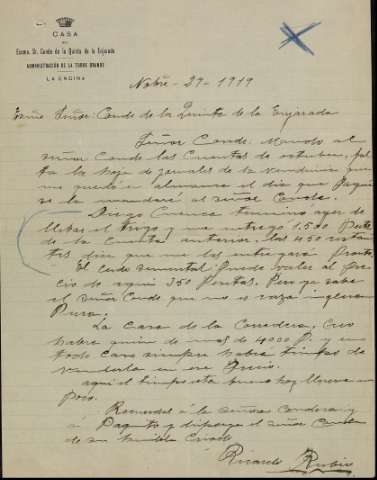 CASA
DEL
Excmo. Sr. Conde de la Quinta de la Enjarada
ADMINISTRACIÓN DE LA TORRE GRANDE
LA ENCINA
Nobre - 29 - 1919
Exmo Señor: Conde de la Quinta de la Enjarada
Señor Conde: Mando al
señor Conde las Cuentas de octubre, fal
ta la hoja de jornales de la vendimia que
me quedé a almorzar el dia que
se la mandaré al señor Conde.
Diego Cuenca termino ayer de
llebar el trigo y me entregó 1.500 Pesetas
de la Cuenta anterior, las 450 restan
tes dice que me las entregara Pronto.
El cerdo semental puede valer al pre
cio de aqui 350 Pesetas. Pero ya sabe
el Señor Conde que no es raza inglesa
Pura.
La Casa de la Corredera, Creo
habra quien de mas de 4000 P. y en
todo caso siempre habrá tiempo de
venderla en ese Precio.
aqui el tiempo esta bueno hoy llueve un
poco.
Recuerdos á la señora Condesa y
á Paquito y disponga el señor Conde
de su humilde Criado
Ricardo Rubio